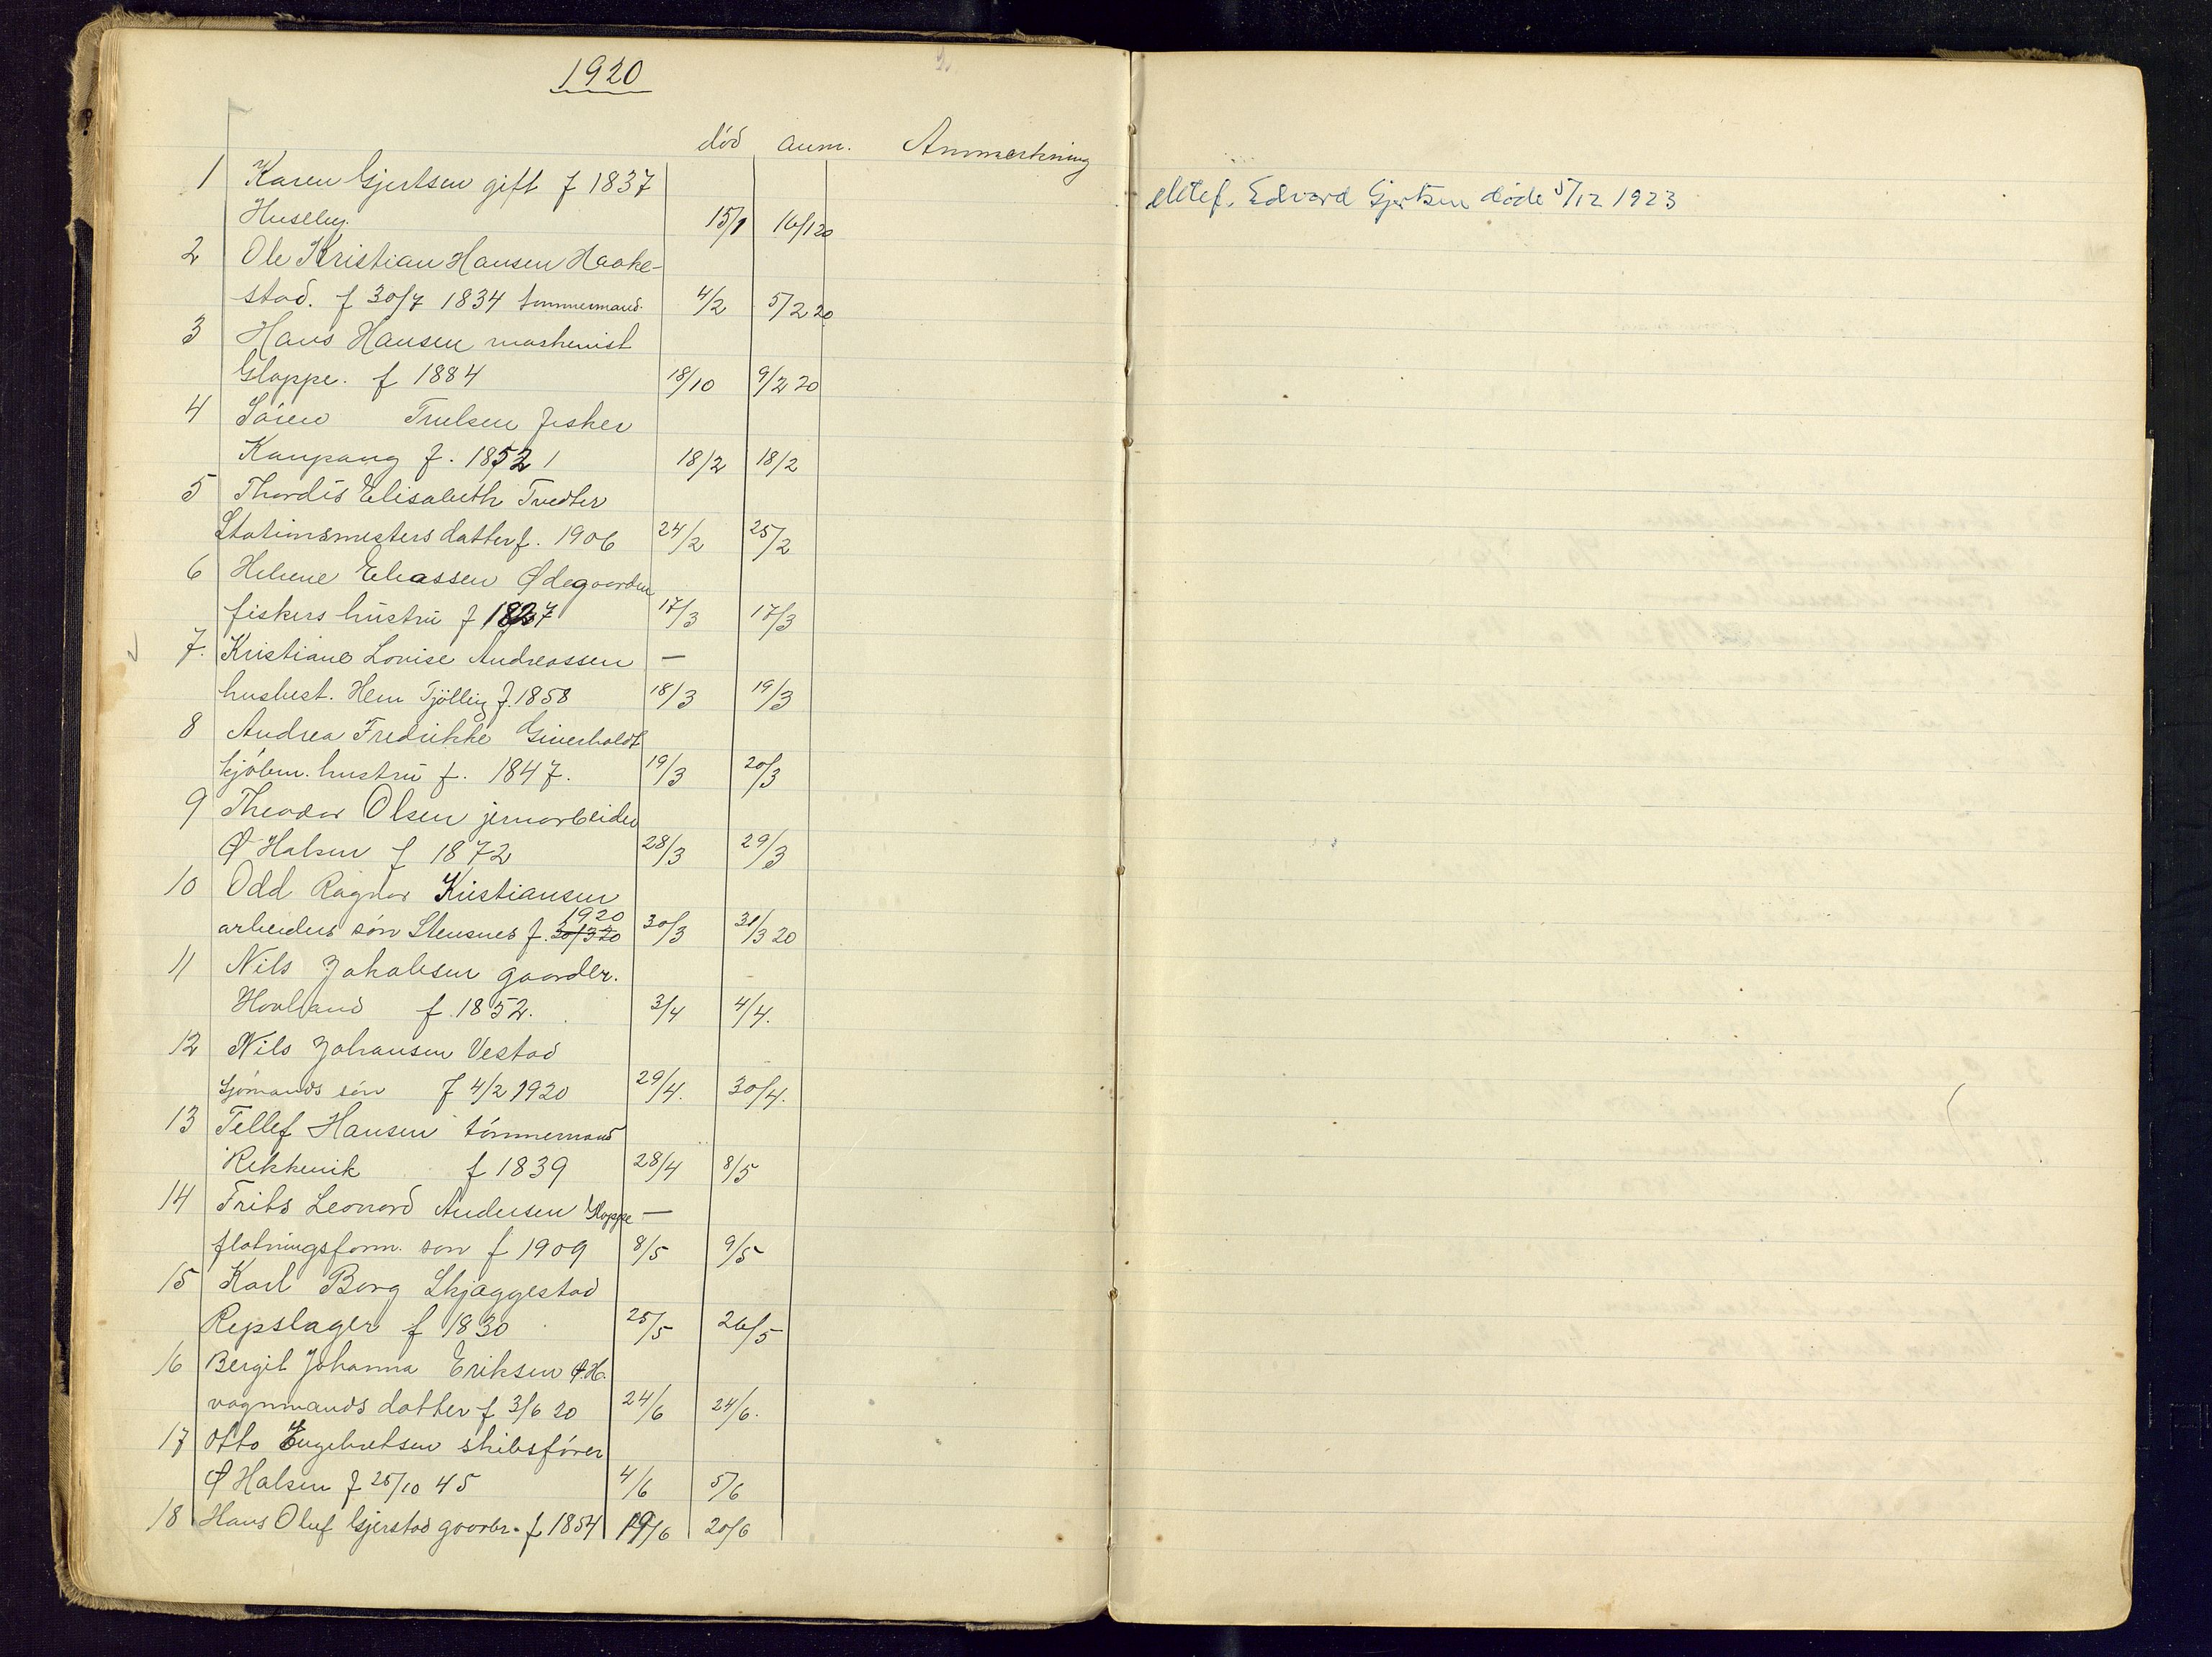 1920
død anm. Anmerkning
1 Karen Gjertsen gift f 1837
Huseby. 15/1 16/1 20
2 Ole Kristian Hansen Haake-
stad. f 30/7 1834 tømmermand. 4/2 5/2 20
3 Hans Hansen maskinist
Gloppe. f 1884 18/10 9/2 20
4 Søren Trulsen fisker
Kaupang f. 1852 18/2 18/2
5 Thordis Elisabeth Tvedter
Stationsmesters datter f. 1906 24/2 25/2
6 Helene Eliassen Ødegaarden
fiskers hustru f 1827 17/3 17/3
7. Kristiane Lovise Andreassen —
husbest. Hem Tjølling f. 1858 18/3 19/3
8 Andrea Fredrikke
kjøbm. hustru f. 1847. 19/3 20/3
9 Theodor Olsen jernarbeider
Ø Halsen f 1872 28/3 29/3
10 Odd Ragnar Kristiansen
1920
arbeiders søn Stensnes f. 30/3 20 30/3 31/3 20
11 Nils Jakobsen gaardbr.
Hovland f. 1852. 3/4 4/4.
12 Nils Johansen Vestad
Sjømands søn f 4/2 1920 29/4. 30/4.
13 Tellef Hansen tømmermand
Rekkevik f 1839 28/4 8/5
14 Frits Leonard Andersen Gloppe —
fløtningsform. søn f 1909 8/5 9/5
15 Karl Borg Skjæggestad
Repslager f 1830 25/5 26/5
16 Bergit Johanna Eriksen Ø.H.
vognmands datter f 3/6 20 24/6 24/6.
17 Otto Engebretsen skibsfører
Ø Halsen f 25/10 45 4/6 5/6
18 Hans Oluf Gjerstad gaardbr. f 1854 19/6 20/6
Edvard Gjertsen døde 5/12 1923